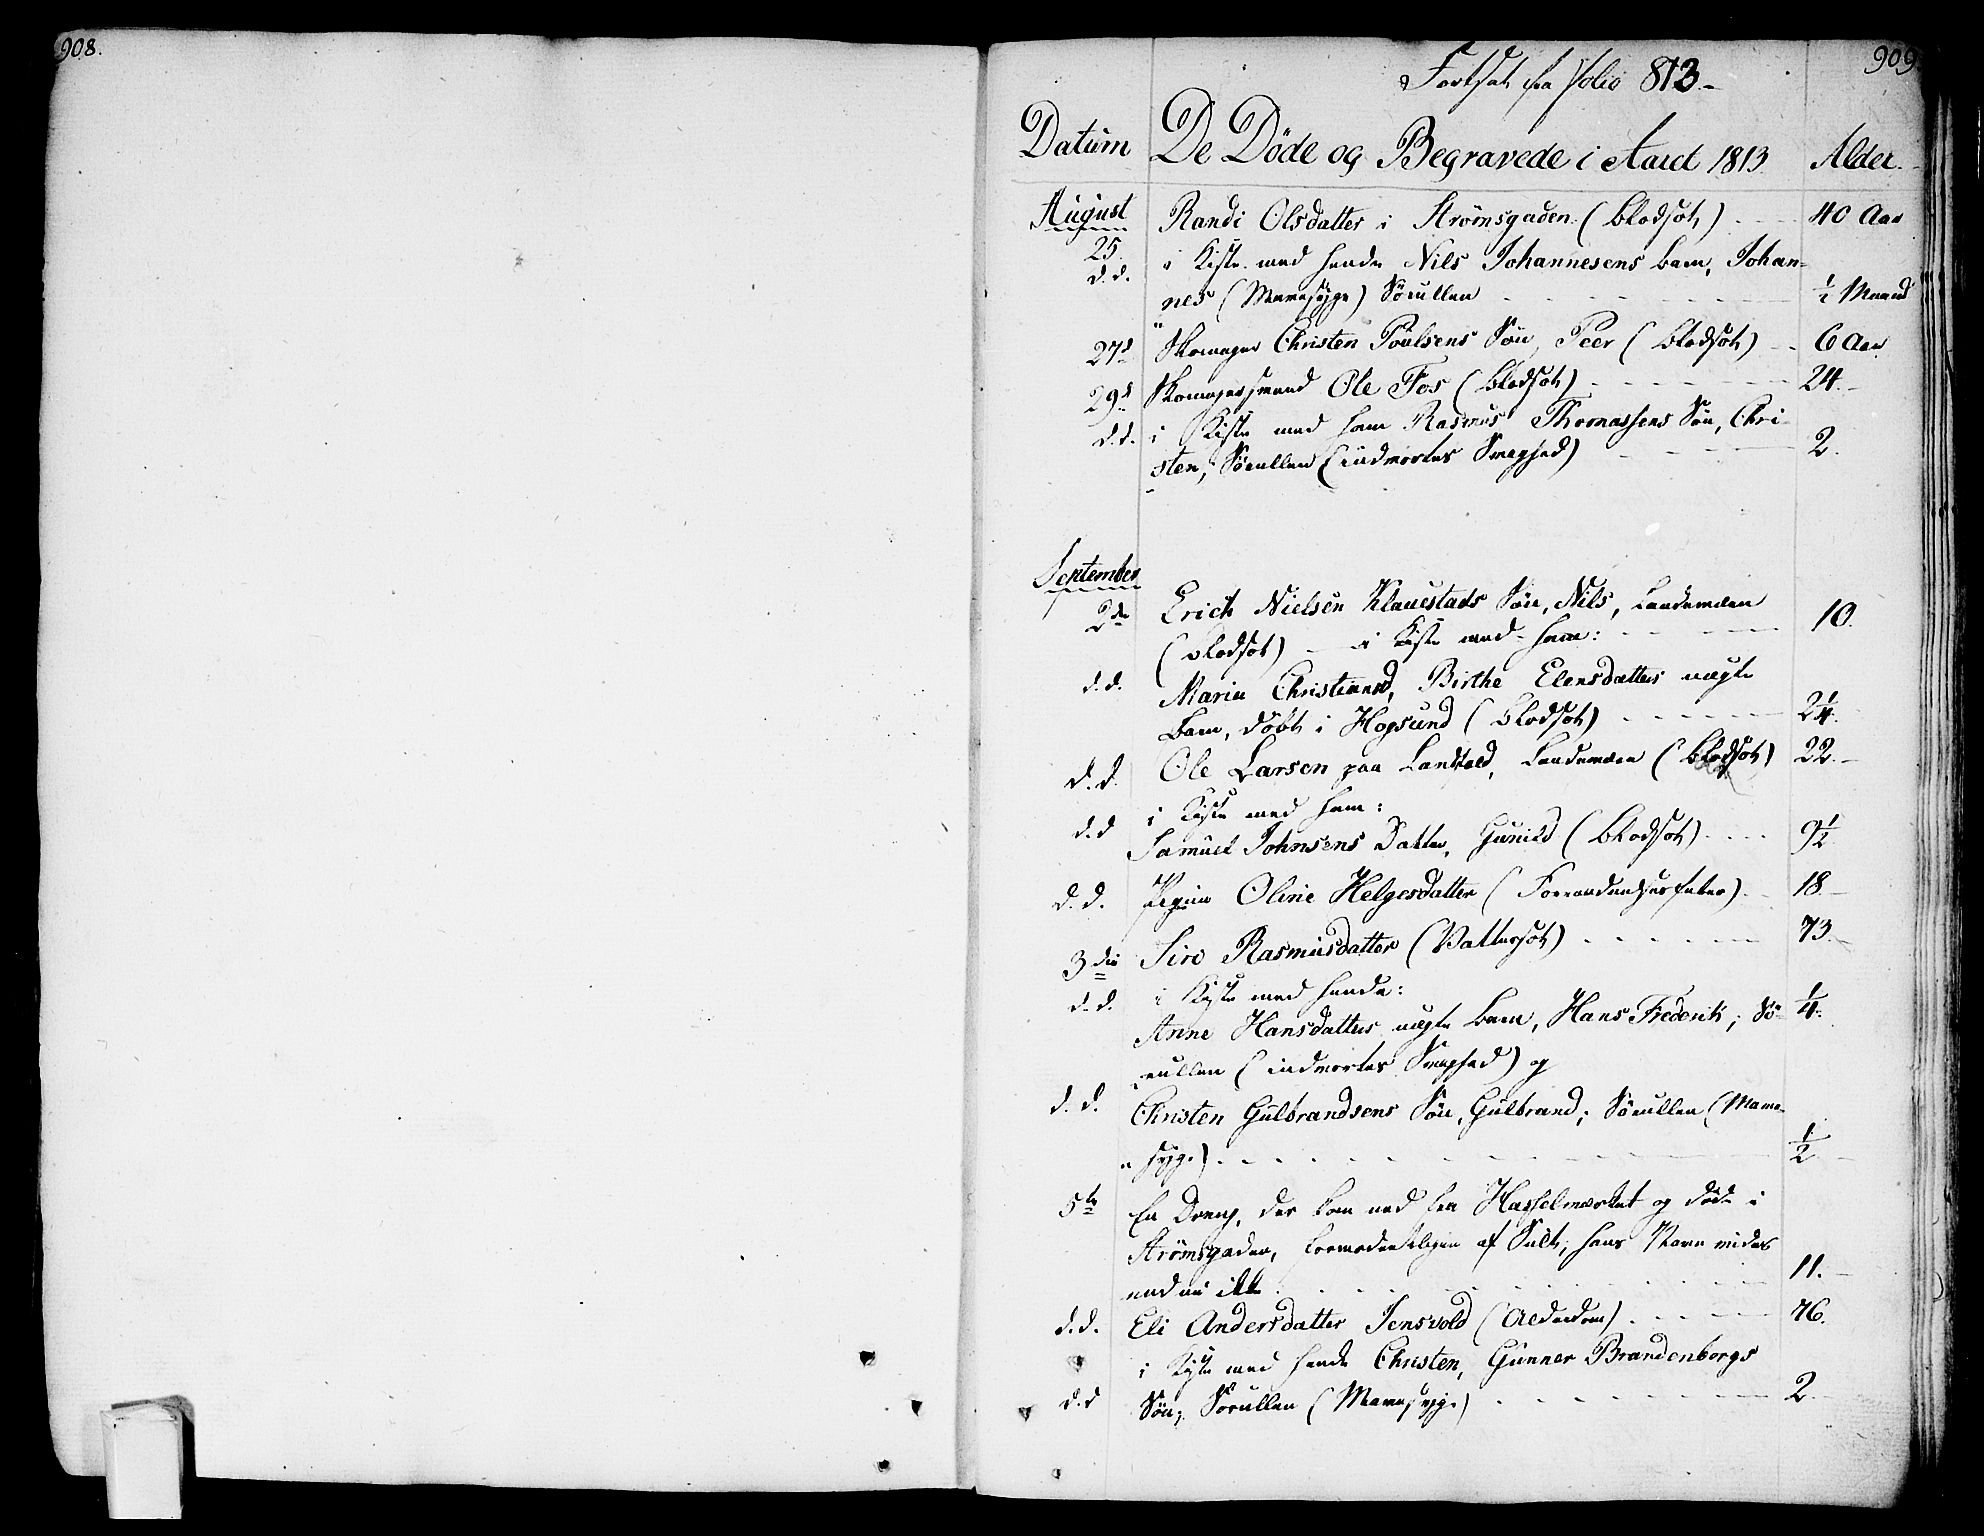 908.
909
Fortsat fra Folio 813.-
Datum De Döde og Begravede i Aaret 1813 Alder.
August Randi Olsdatter i Strömsgaden. (Blodsot) 40 Aar
25.
d.d. i Kiste med hende Nils Johannesens Barn, Johan-
nes (Mavesyge) Söeullen ½ Maaned
27d Skomager Christen Poulsens Sön, Peer (Blodsot) 6 Aar
29d Skomagersvend Ole Fos (Blodsot) 24.-
d.d. i Kiste med ham Rasmus Thomassens Sön, Chri-
sten, Söeullen (indvortes Svaghed) 2.
September
2de Erich Nielsen Klauestads Sön, Nils, Landeveien 10.
(Blodsot) i Kiste med ham:
d.d. Maria Christiane, Birthe Elensdatters uægte
Barn, döbt i Hogsund (Blodsot) 2¼.
d.d. Ole Larsen paa Landfald, Landeveien (Blodsot) 22.-
i Kiste med ham:
d.d Samuel Johnsens Datter, Gunild (Blodsot) 9½
d.d. Pigen Oline Helgesdatter (Forraadnelsesfeber) 18-
3die Siro Rasmusdatter (Vattersot) 73.
d.d. i Kiste med hende:
Anne Hansdatters uægte Barn, Hans Frederik; Sö- ¼.
eullen (indvortes Svaghed) og
d.d. Christen Gulbrandsens Sön, Gulbrand; Söeullen (Mave-
syge) ½
5te En Dreng, der kom ned fra Hasselværket og döde i
Strömsgaden, formodentligen af Sult; hans Navn vides
endnu ikke 11.-
d.d. Eli Andersdatter Jensvold (Alderdom) 76.
i Kiste med hende Christen, Gunner Brandenborgs
d.d Sön, Söeullen (Mavesyge) 2-